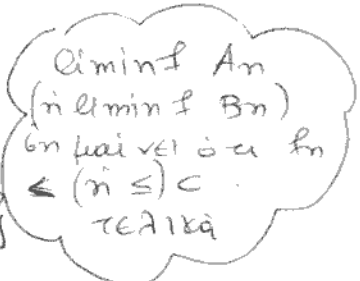 liminf An
(ή liminf Bn)
σημαίνει ότι fn
≤ (ή ≤) c.
τελικά